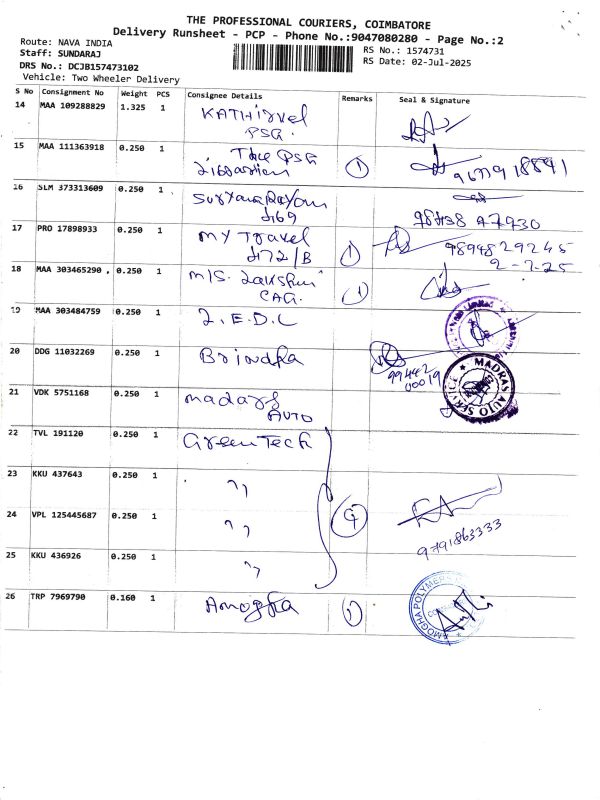 THE PROFESSIONAL COURIERS, COIMBATORE
Delivery Runsheet - PCP - Phone No.:9047080280 - Page No.:2
Route: NAVA INDIA
Staff: SUNDARAJ
DRS No.: DCJB157473102
Vehicle: Two Wheeler Delivery
RS No.: 1574731
RS Date: 02-Jul-2025
S No Consignment No Weight PCS Consignee Details Remarks Seal & Signature
14 MAA 109288829 1.325 1 KATHirvel
PSG.
15 MAA 111363918 0.250 1 The PSG 1
16 SLM 373313609 0.250 1
17 PRO 17898933 0.250 1 My Travel 1 9894829245
472/B 2-7-25
18 MAA 303465290 , 0.250 1 M/S. Lakshmi 1
19 MAA 303484759 0.250 1 L.E.D.L
20 DDG 11032269 0.250 1 Brindha 99442
00019
MADRAS AUTO SERVICE
21 VDK 5751168 0.250 1 Madars
AUTO
22 TVL 191120 0.250 1 GreenTech
23 KKU 437643 0.250 1 ,,
24 VPL 125445687 0.250 1 ,, 4 9791863333
25 KKU 436926 0.250 1 ,,
26 TRP 7969790 0.160 1 Amogha 1
AMOGHA POLYMERS